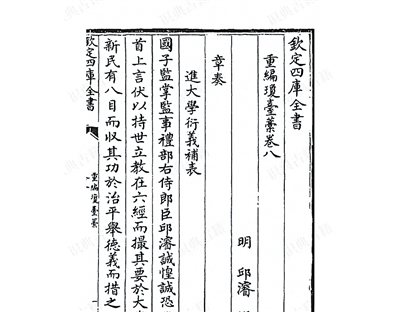 欽定四庫全書
重編瓊臺藁卷八
明 邱濬
章奏
進大學衍義補表
國子監掌監事禮部右侍郎臣邱濬誠惶誠恐
首上言伏以持世立教在六經而撮其要於大
新民有八目而収其功於治平舉德義而措之
欽定四庫全書
重編瓊臺藁